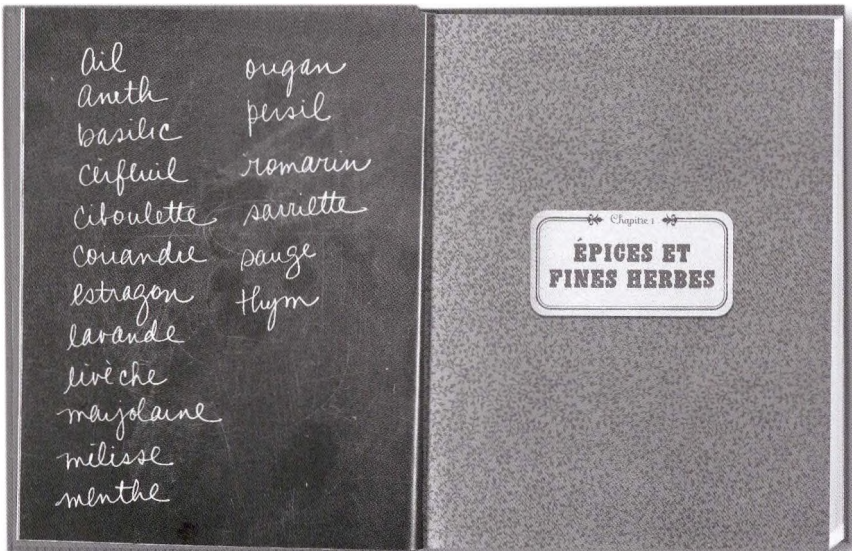 ail
aneth
basilic
cerfeuil
ciboulette
coriandre
estragon
lavande
livèche
marjolaine
mélisse
menthe
origan
persil
romarin
sarriette
sauge
thym
Chapitre 1
ÉPICES ET
FINES HERBES